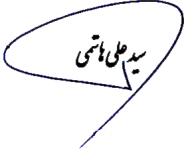 سید علی هاشمی